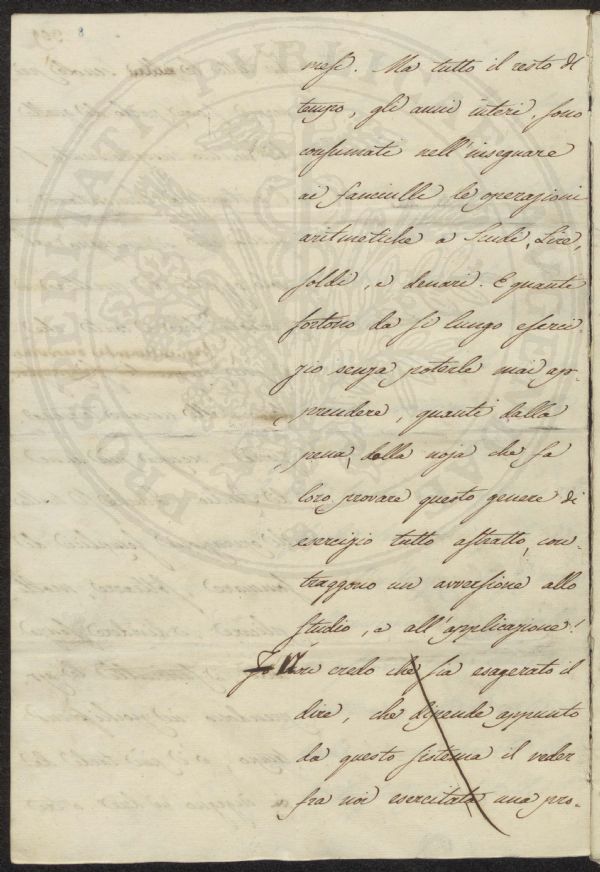 8
mesi. Ma tutto il resto del
tempo, gli anni interi, sono
consumati nell'insegnare
ai fanciulli le operazioni
aritmetiche a Scudi, Lire,
soldi, e denari. E quanti
sortono da sì lungo eserci-
zio senza poterle mai ap-
prendere, quanti dalla
pena, dalla noja che fa
loro provare questo genere di
esercizio tutto astratto, con-
traggono un avversione allo
studio, e all'applicazione!
credo che sia esagerato il
dire, che dipende appunto
da questo sistema il veder
fra noi esercitata una pro-